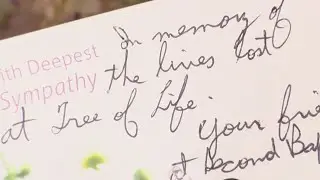 ith Deepest
Sympathy
In memory of
the lives lost
at Tree of Life.
Your frie
at Second Bap